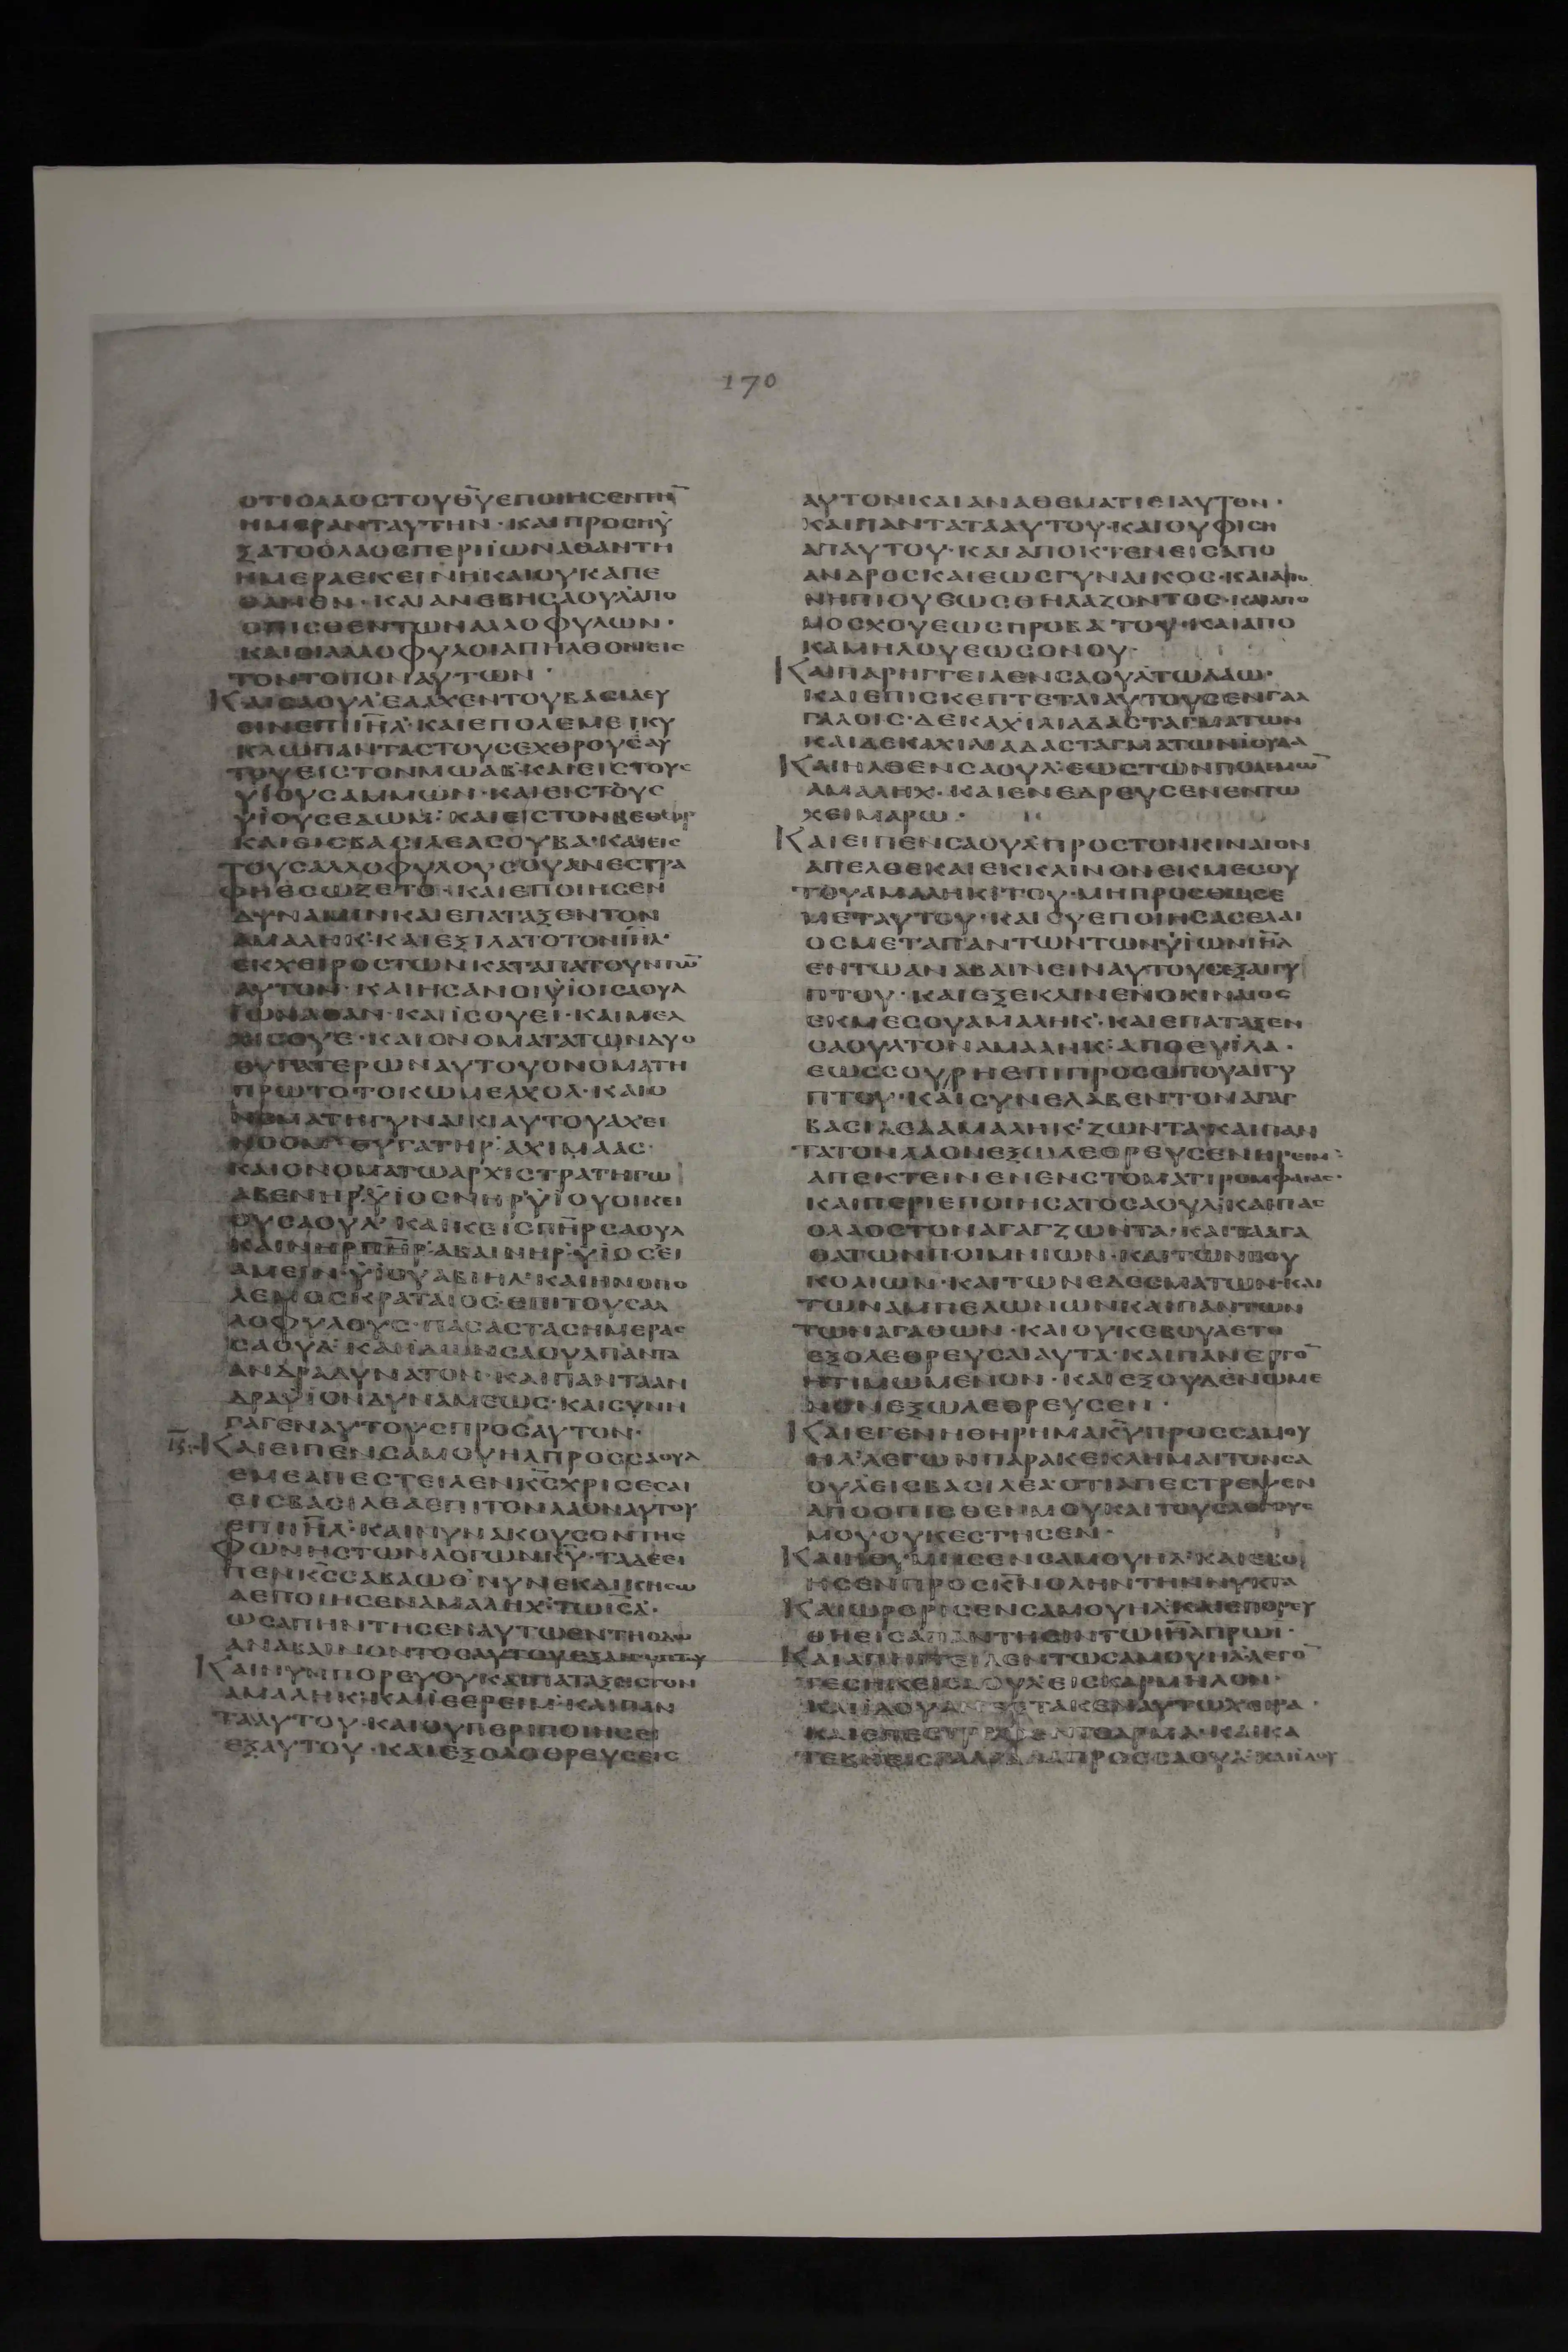 170
ΟΤΙΟΛΑΟΣΤΟΥΘ̅Υ̅ΕΠΟΙΗΣΕΝΤΗ̅
ΗΜΕΡΑΝΤΑΥΤΗΝ·ΚΑΙΠΡΟΣΗΥ
ΞΑΤΟΟΛΑΟΣΠΕΡΙΪΩΝΑΘΑΝΤΗ
ΗΜΕΡΑΕΚΕΙΝΗΚΑΙΟΥΚΑΠΕ
ΘΑΝΕΝ·ΚΑΙΑΝΕΒΗΣΑΟΥΛΑΠΟ
ΟΠΙΣΘΕΝΤΩΝΑΛΛΟΦΥΛΩΝ·
ΚΑΙΟΙΑΛΛΟΦΥΛΟΙΑΠΗΛΘΟΝΕΙΣ
ΤΟΝΤΟΠΟΝΑΥΤΩΝ·
ΚΑΙΣΑΟΥΛΕΛΑΧΕΝΤΟΥΒΑΣΙΛΕΥ
ΕΙΝΕΠΙΙ̅Η̅Λ̅·ΚΑΙΕΠΟΛΕΜΕΙΚΥ
ΚΛΩΠΑΝΤΑΣΤΟΥΣΕΧΘΡΟΥΣΑΥ
ΤΟΥΕΙΣΤΟΝΜΩΑΒ·ΚΑΙΕΙΣΤΟΥΣ
ΥΪΟΥΣΑΜΜΩΝ·ΚΑΙΕΙΣΤΟΥΣ
ΥΪΟΥΣΕΔΩΜ·ΚΑΙΕΙΣΤΟΝΒΕΘΕΩΡ
ΚΑΙΕΙΣΒΑΣΙΛΕΑΣΟΥΒΑ·ΚΑΙΕΙΣ
ΤΟΥΣΑΛΛΟΦΥΛΟΥΣΟΥΑΝΕΣΤΡΑ
ΦΗΕΣΩΖΕΤΟ·ΚΑΙΕΠΟΙΗΣΕΝ
ΔΥΝΑΜΙΝΚΑΙΕΠΑΤΑΞΕΝΤΟΝ
ΑΜΑΛΗΚ·ΚΑΙΕΞΙΛΑΤΟΤΟΝΙ̅Η̅Λ̅·
ΕΚΧΕΙΡΟΣΤΩΝΚΑΤΑΠΑΤΟΥΝΤΩ̅
ΑΥΤΟΝ·ΚΑΙΗΣΑΝΟΙΥΪΟΙΣΑΟΥΛ
ΙΩΝΑΘΑΝ·ΚΑΙΪΣΟΥΕΙ·ΚΑΙΜΕΛ
ΧΙΣΟΥΕ·ΚΑΙΟΝΟΜΑΤΑΤΩΝΔΥΟ
ΘΥΓΑΤΕΡΩΝΑΥΤΟΥΟΝΟΜΑΤΗ
ΠΡΩΤΟΤΟΚΩΜΕΛΧΟΛ·ΚΑΙΟ
ΝΟΜΑΤΗΓΥΝΑΙΚΙΑΥΤΟΥΑΧΕΙ
ΝΟΟΜ·ΘΥΓΑΤΗΡΑΧΙΜΑΑΣ·
ΚΑΙΟΝΟΜΑΤΩΑΡΧΙΣΤΡΑΤΗΓΩ
ΑΒΕΝΗΡΥΪΟΣΝΗΡΥΪΟΥΟΙΚΕΙ
ΟΥΣΑΟΥΛ·ΚΑΙΚΕΙΣΠ̅Η̅Ρ̅ΣΑΟΥΛ
ΚΑΙΝΗΡΠ̅Η̅Ρ̅ΑΒΑΙΝΗΡΥΪΟΣΕΙ
ΑΜΕΙΝ·ΥΪΟΥΑΒΙΗΛ·ΚΑΙΗΝΟΠΟ
ΛΕΜΟΣΚΡΑΤΑΙΟΣ·ΕΠΙΤΟΥΣΑΛ
ΛΟΦΥΛΟΥΣ·ΠΑΣΑΣΤΑΣΗΜΕΡΑΣ
ΣΑΟΥΛ·ΚΑΙΪΔΩΝΣΑΟΥΛΠΑΝΤΑ
ΑΝΔΡΑΔΥΝΑΤΟΝ·ΚΑΙΠΑΝΤΑΑΝ
ΔΡΑΥΪΟΝΔΥΝΑΜΕΩΣ·ΚΑΙΣΥΝΗ
ΓΑΓΕΝΑΥΤΟΥΣΠΡΟΣΑΥΤΟΝ·
ΚΑΙΕΙΠΕΝΣΑΜΟΥΗΛΠΡΟΣΣΑΟΥΛ
ΕΜΕΑΠΕΣΤΕΙΛΕΝΚ̅Σ̅ΧΡΙΣΕΣΑΙ
ΕΙΣΒΑΣΙΛΕΑΕΠΙΤΟΝΛΑΟΝΑΥΤΟΥ
ΕΠΙΙ̅Η̅Λ̅·ΚΑΙΝΥΝΑΚΟΥΣΟΝΤΗΣ
ΦΩΝΗΣΤΩΝΛΟΓΩΝΚ̅Υ̅·ΤΑΔΕΕΙ
ΠΕΝΚ̅Σ̅ΣΑΒΑΩΘΝΥΝΕΚΔΙΚΗΣΩ
ΑΕΠΟΙΗΣΕΝΑΜΑΛΗΧΤΩΙ̅Σ̅Λ̅·
ΩΣΑΠΗΝΤΗΣΕΝΑΥΤΩΕΝΤΗΟΔΩ
ΑΝΑΒΑΙΝΟΝΤΟΣΑΥΤΟΥΕΞΑΙΓΥΠΤΟΥ
ΚΑΙΝΥΝΠΟΡΕΥΟΥΚΑΙΠΑΤΑΞΕΙΣΤΟΝ
ΑΜΑΛΗΚ·ΚΑΙΪΕΡΕΙΜ·ΚΑΙΠΑΝ
ΤΑΑΥΤΟΥ·ΚΑΙΟΥΠΕΡΙΠΟΙΗΣΕΙ
ΕΞΑΥΤΟΥ·ΚΑΙΕΞΟΛΟΘΡΕΥΣΕΙΣ
ΑΥΤΟΝΚΑΙΑΝΑΘΕΜΑΤΙΕΙΑΥΤΟΝ·
ΚΑΙΠΑΝΤΑΤΑΑΥΤΟΥ·ΚΑΙΟΥΦΙΣΗ
ΑΠΑΥΤΟΥ·ΚΑΙΑΠΟΚΤΕΝΕΙΣΑΠΟ
ΑΝΔΡΟΣΚΑΙΕΩΣΓΥΝΑΙΚΟΣ·ΚΑΙΑΠΟ
ΝΗΠΙΟΥΕΩΣΘΗΛΑΖΟΝΤΟΣ·ΚΑΙΑΠΟ
ΜΟΣΧΟΥΕΩΣΠΡΟΒΑΤΟΥ·ΚΑΙΑΠΟ
ΚΑΜΗΛΟΥΕΩΣΟΝΟΥ·
ΚΑΙΠΑΡΗΓΓΕΙΛΕΝΣΑΟΥΛΤΩΛΑΩ·
ΚΑΙΕΠΙΣΚΕΠΤΕΤΑΙΑΥΤΟΥΣΕΝΓΑΛ
ΓΑΛΟΙΣ·ΔΕΚΑΧΙΛΙΑΔΑΣΤΑΓΜΑΤΩΝ
ΚΑΙΔΕΚΑΧΙΛΙΑΔΑΣΤΑΓΜΑΤΩΝΙΟΥΔΑ
ΚΑΙΗΛΘΕΝΣΑΟΥΛΕΩΣΤΩΝΠΟΛΕΜΩ̅
ΑΜΑΛΗΧ·ΚΑΙΕΝΕΔΡΕΥΣΕΝΕΝΤΩ
ΧΕΙΜΑΡΩ·
ΚΑΙΕΙΠΕΝΣΑΟΥΛΠΡΟΣΤΟΝΚΙΝΑΙΟΝ
ΑΠΕΛΘΕΚΑΙΕΚΚΛΙΝΟΝΕΚΜΕΣΟΥ
ΤΟΥΑΜΑΛΗΚΙΤΟΥ·ΜΗΠΡΟΣΘΩΣΕ
ΜΕΤΑΥΤΟΥ·ΚΑΙΣΥΕΠΟΙΗΣΑΣΕΛΑΙ
ΟΣΜΕΤΑΠΑΝΤΩΝΤΩΝΥΪΩΝΙ̅Η̅Λ̅
ΕΝΤΩΑΝΑΒΑΙΝΕΙΝΑΥΤΟΥΣΕΞΑΙΓΥ
ΠΤΟΥ·ΚΑΙΕΞΕΚΛΙΝΕΝΟΚΙΝΑΙΟΣ
ΕΚΜΕΣΟΥΑΜΑΛΗΚ·ΚΑΙΕΠΑΤΑΞΕΝ
ΣΑΟΥΛΤΟΝΑΜΑΛΗΚ·ΑΠΟΕΥΪΛΑ·
ΕΩΣΣΟΥΡΗΕΠΙΠΡΟΣΩΠΟΥΑΙΓΥ
ΠΤΟΥ·ΚΑΙΣΥΝΕΛΑΒΕΝΤΟΝΑΓΑΓ
ΒΑΣΙΛΕΑΑΜΑΛΗΚΖΩΝΤΑ·ΚΑΙΠΑΝ
ΤΑΤΟΝΛΑΟΝΕΞΩΛΕΘΡΕΥΣΕΝΗΡΕΙΜ·
ΑΠΕΚΤΕΙΝΕΝΕΝΣΤΟΜΑΤΙΡΟΜΦΑΙΑΣ·
ΚΑΙΠΕΡΙΕΠΟΙΗΣΑΤΟΣΑΟΥΛ·ΚΑΙΠΑΣ
ΟΛΑΟΣΤΟΝΑΓΑΓΖΩΝΤΑ·ΚΑΙΤΑΑΓΑ
ΘΑΤΩΝΠΟΙΜΝΙΩΝ·ΚΑΙΤΩΝΒΟΥ
ΚΟΛΙΩΝ·ΚΑΙΤΩΝΕΔΕΣΜΑΤΩΝ·ΚΑΙ
ΤΩΝΑΜΠΕΛΩΝΩΝΚΑΙΠΑΝΤΩΝ
ΤΩΝΑΓΑΘΩΝ·ΚΑΙΟΥΚΕΒΟΥΛΕΤΟ
ΕΞΟΛΕΘΡΕΥΣΑΙΑΥΤΑ·ΚΑΙΠΑΝΕΡΓΟ̅
ΗΤΙΜΩΜΕΝΟΝ·ΚΑΙΕΞΟΥΔΕΝΩΜΕ
ΝΟΝΕΞΩΛΕΘΡΕΥΣΕΝ·
ΚΑΙΕΓΕΝΗΘΗΡΗΜΑΚ̅Υ̅ΠΡΟΣΣΑΜΟΥ
ΗΛΛΕΓΩΝΠΑΡΑΚΕΚΛΗΜΑΙΤΟΝΣΑ
ΟΥΛΕΙΣΒΑΣΙΛΕΑΟΤΙΑΠΕΣΤΡΕΨΕΝ
ΑΠΟΟΠΙΣΘΕΝΜΟΥΚΑΙΤΟΥΣΛΟΓΟΥΣ
ΜΟΥΟΥΚΕΣΤΗΣΕΝ·
ΚΑΙΗΘΥΜΗΣΕΝΣΑΜΟΥΗΛ·ΚΑΙΕΒΟ
ΗΣΕΝΠΡΟΣΚ̅Ν̅ΟΛΗΝΤΗΝΝΥΚΤΑ
ΚΑΙΩΡΘΡΙΣΕΝΣΑΜΟΥΗΛΚΑΙΕΠΟΡΕΥ
ΘΗΕΙΣΑΠΑΝΤΗΣΙΝΤΩΙ̅Η̅Λ̅ΠΡΩΙ·
ΚΑΙΑΠΗΓΓΕΙΛΕΝΤΩΣΑΜΟΥΗΛΛΕΓΟ̅
ΤΕΣΗΚΕΙΣΑΟΥΛΕΙΣΚΑΡΜΗΛΟΝ·
ΚΑΙΪΔΟΥΑΝΕΣΤΑΚΕΝΑΥΤΩΧΕΙΡΑ·
ΚΑΙΕΠΕΣΤΡΕΨΕΝΤΟΑΡΜΑ·ΚΑΙΚΑ
ΤΕΒΗΕΙΣΓΑΛΓΑΛΑΠΡΟΣΣΑΟΥΛ·ΚΑΙΪΔΟΥ